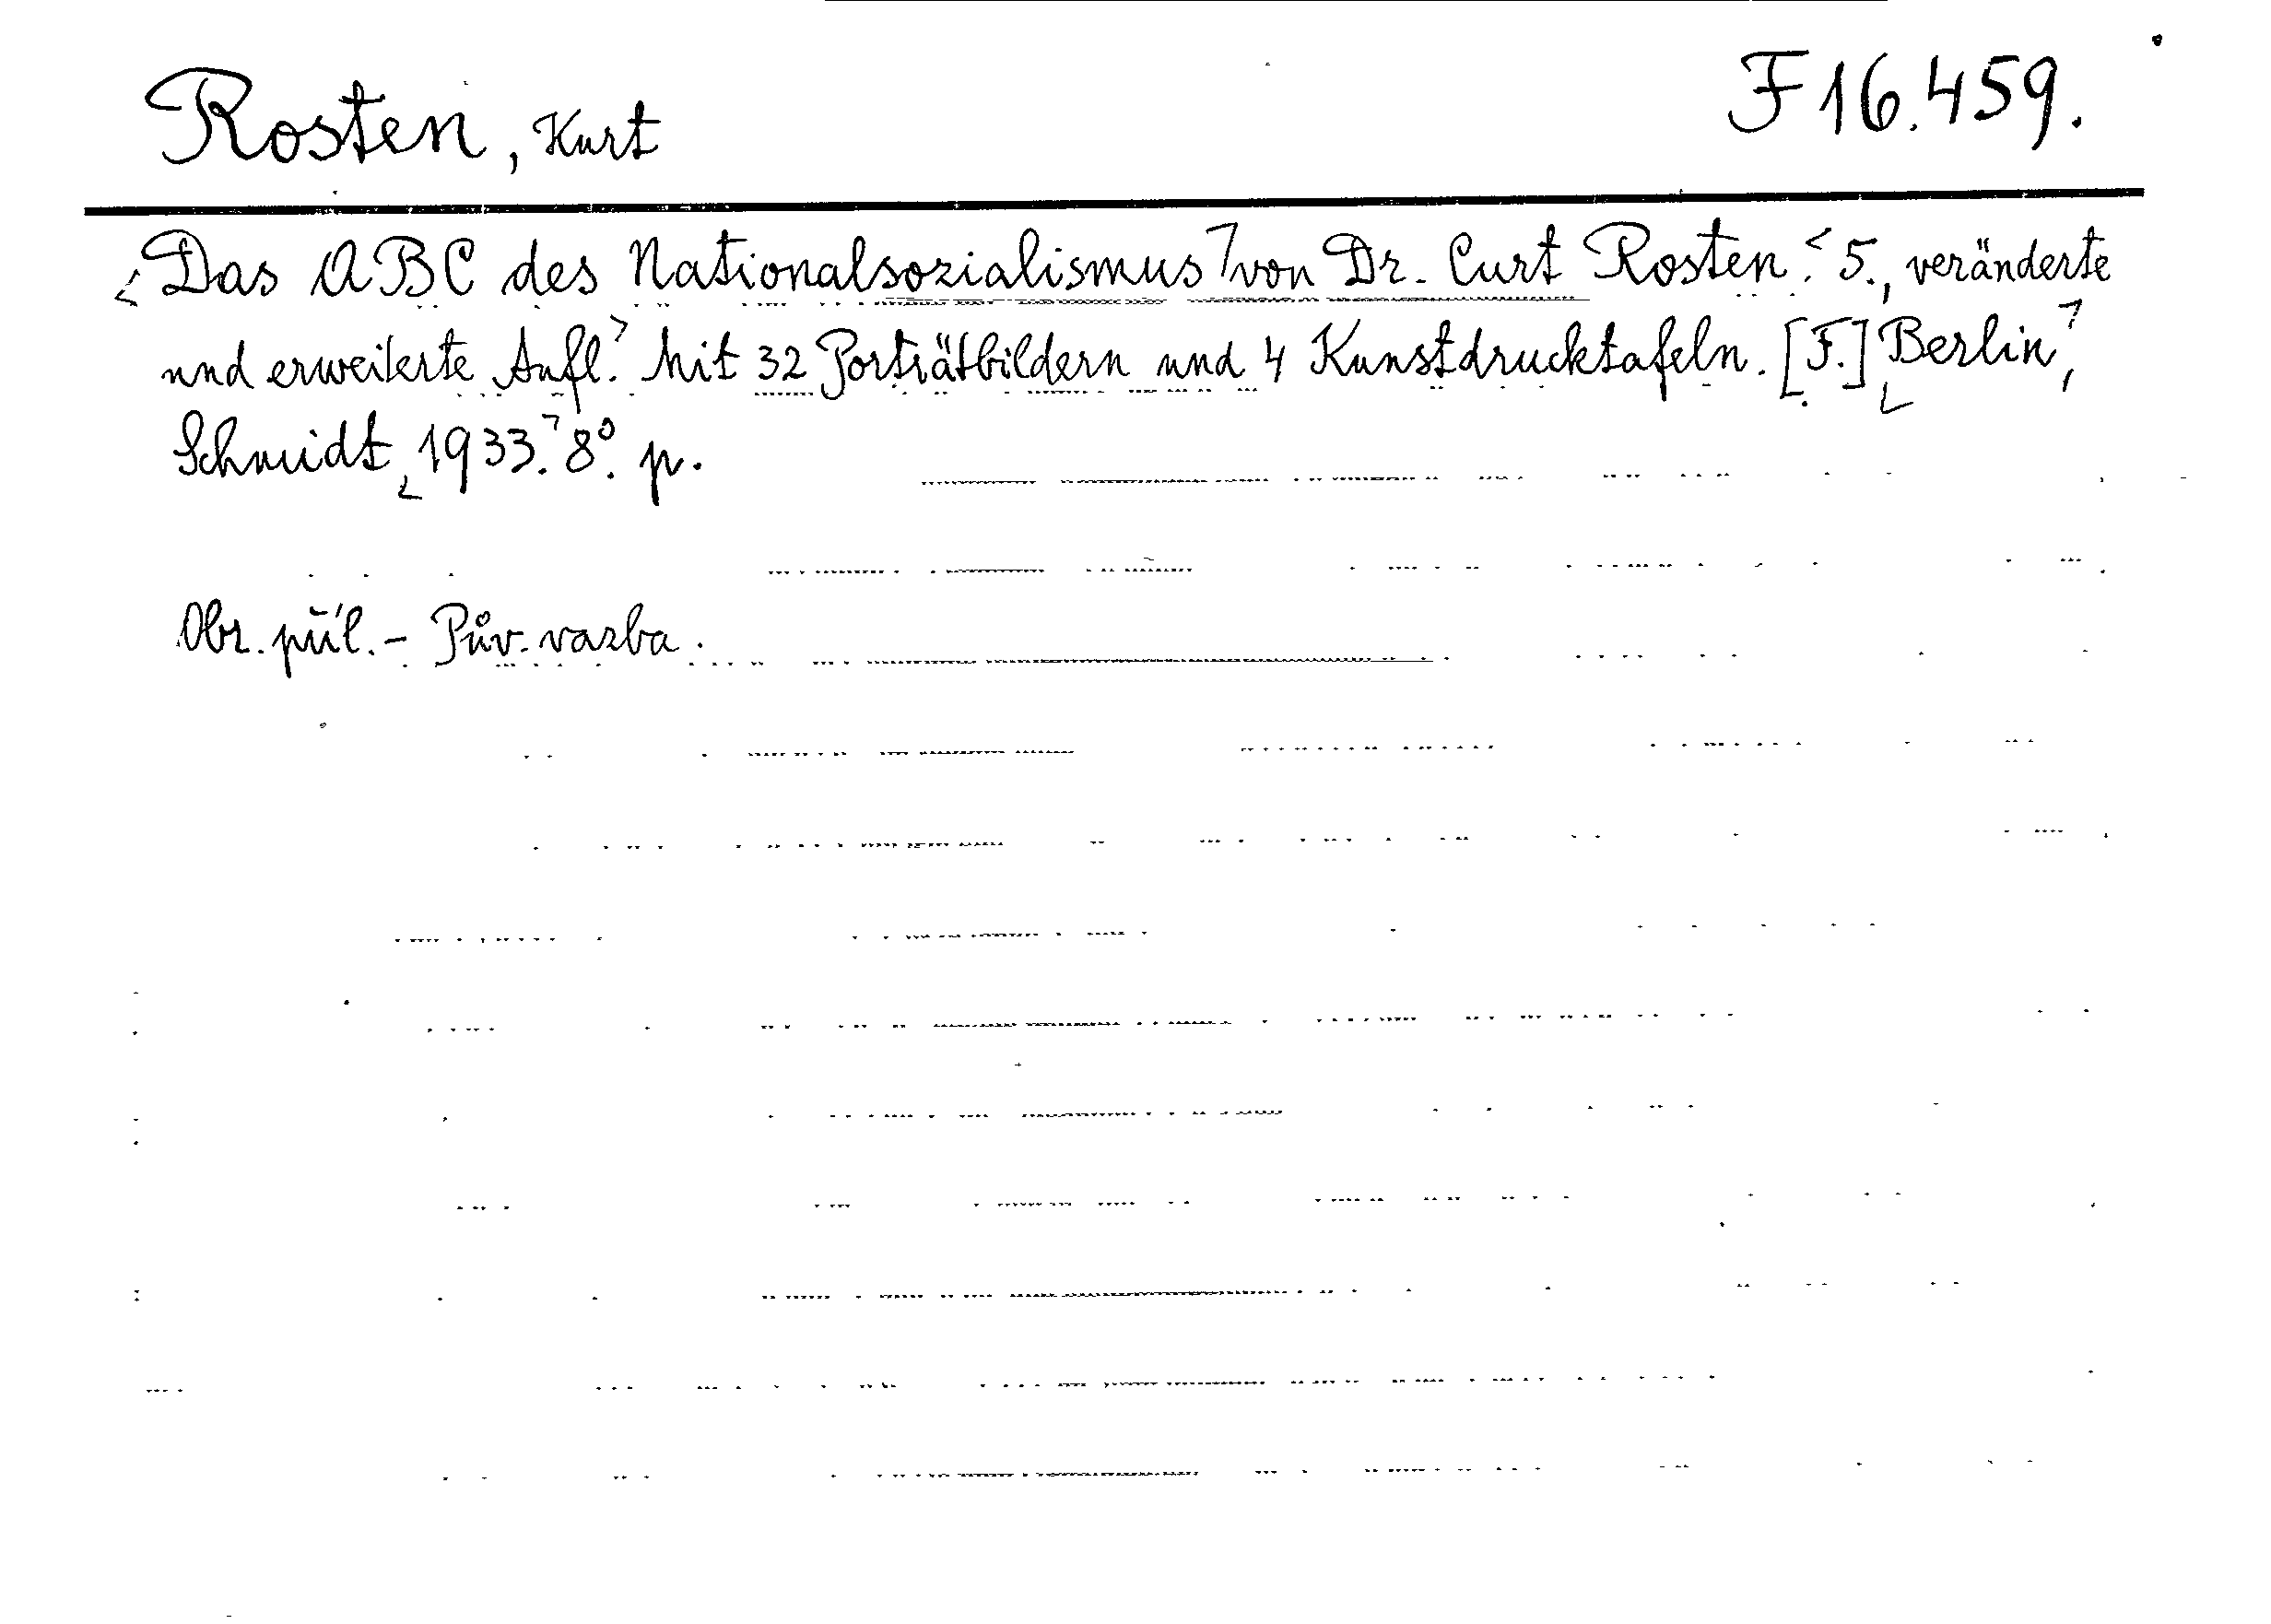 Rosten, Kurt
F 16.459.
Das ABC des Nationalsozialismus von Dr. Curt Rosten. 5., veränderte
und erweiterte Aufl. Mit 32 Porträtbildern und 4 Kunstdrucktafeln. [F.] Berlin,
Schmidt 1933. 8°. p.
Obr. příl. - Pův. vazba.